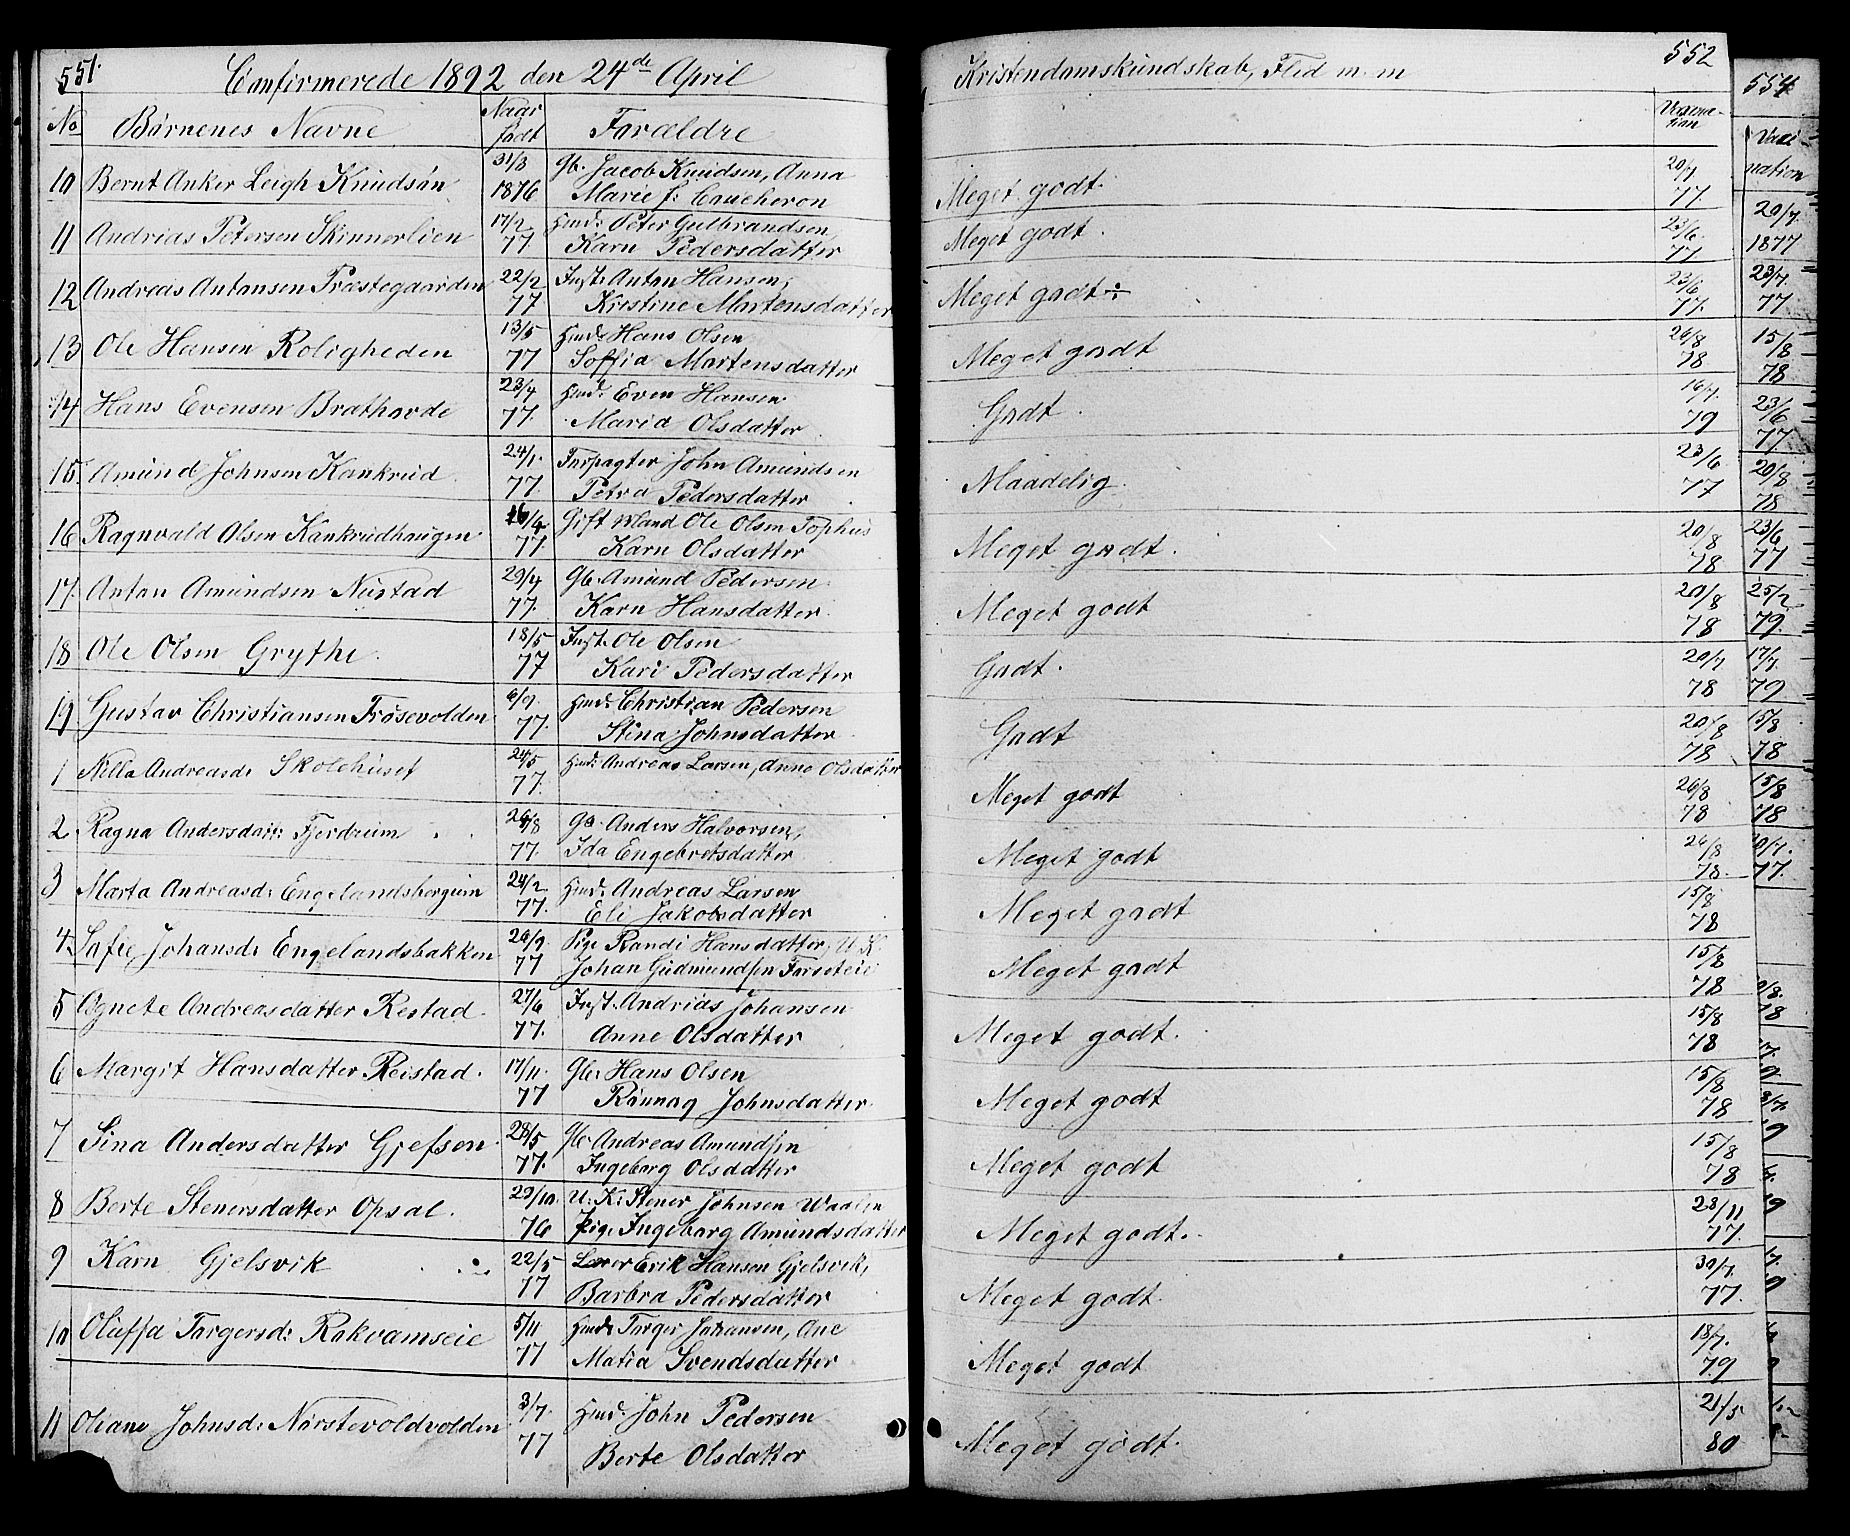 551.
Confirmerede 1892 den 24de April
No Børnenes Navne Naar født Forældre
10 Bernt Anker Leigh Knudsøn 31/3 1876 Gb. Jacob Knudsen, Anna
Marie f. Caucheron
11 Andrias Petersen Skinnerlien 17/2 77 Husm: Peter Gulbrandsen
Karn Pedersdatter
12 Andreas Antonsen Præstegaarden 22/2 77 Inst: Anton Hansen,
Kristine Martensdatter
13 Ole Hansen Roligheden 13/5 77 Husm: Hans Olsen
Soffia Martensdatter
14 Hans Evensen Brathovde 23/4 77. Husm: Even Hansen
Maria Olsdatter
15. Amund Johnsen Kankrud 24/1. 77. Forpagter John Amundsen
Petra Pedersdatter
16 Ragnvald Olsen Kankrudhaugen 16/4 77. Gift Mand Ole Olsen Tophus
Karn Olsdatter
17. Anton Amundsen Nustad 29/4 77. Gb. Amund Pedersen
Karn Hansdatter.
18 Ole Olsen Grythe. 18/5 77 Inst. Ole Olsen
Kari Pedersdatter
19 Gustav Christiansen Frøsevolden 6/9. 77. Husm: Christian Pedersen
Stina Johnsdatter.
1 Nilla Andreasd: Skolehuset 24/5 77. Husm: Andreas Larsen, Anne Olsdatter
2 Ragna Andersdatt: Fjerdrum 26/8 77. Gb. Anders Halvorsen,
Ida Engebretsdatter
3 Marta Andreasd: Engelandsbergum 24/2 77. Husm: Andreas Larsen
Eli Jakobsdatter
4 Safie Johansd: Engelandsbakken 26/9 77 Pige Randi Hansdatter, U. K.
Johan Gudmundsen
5 Agnete Andreasdatter Restad. 27/6 77. Inst: Andrias Johansen
Anne Olsdatter
6 Margit Hansdatter Reistad. 17/11. 77 Gb: Hans Olsen
Rønnag Johnsdatter.
7 Sina Andersdatter Gjefsen. 28/5 77. Gb. Andreas Amundsen
Ingeborg Olsdatter
8 Berte Stenersdatter Opsal. 29/10. 76 U. K: Stener Johnsen
Pige Ingeborg Amundsdatter
9 Karn Gjelsvik 22/5 77 Lærer Erik Hansen Gjelsvik,
Barbra Pedersdatter
10 Oluffa Torgersd: Rokvamseie 5/11 77 Husm: Torger Johansen, Ane
Matia Svendsdatter
11 Oliane Johnsd: Nørstevoldvolden 3/7. 77 Husm: John Pedersen
Berte Olsdatter
552
Kristendomskundskab, Flid m. m
Vaccination
Meget godt. 20/7 77.
Meget godt. 23/6. 77.
Meget godt ÷ 23/6 77.
Meget godt 26/8 78
Godt. 16/7. 79
Maadelig. 23/6. 77
Meget godt. 20/8 78
Meget godt 20/8 78
Godt. 20/7 78
Godt 20/8 78
Meget godt 26/8 78
Meget godt 26/8 78.
Meget godt 15/8 78
Meget godt 15/8 78
Meget godt. 15/8 78
Meget godt 15/8 78
Meget godt 15/8 78
Meget godt. 28/11 77.
Meget godt. 30/7. 77.
Meget godt 18/7. 79
Meget godt. 21/5 80
554
Vaccination
20/7. 1877
23/7. 77
15/8 78
23/6 77
20/8 78
23/6 77
25/2 79.
17/7. 79
15/8 78
15/8 78